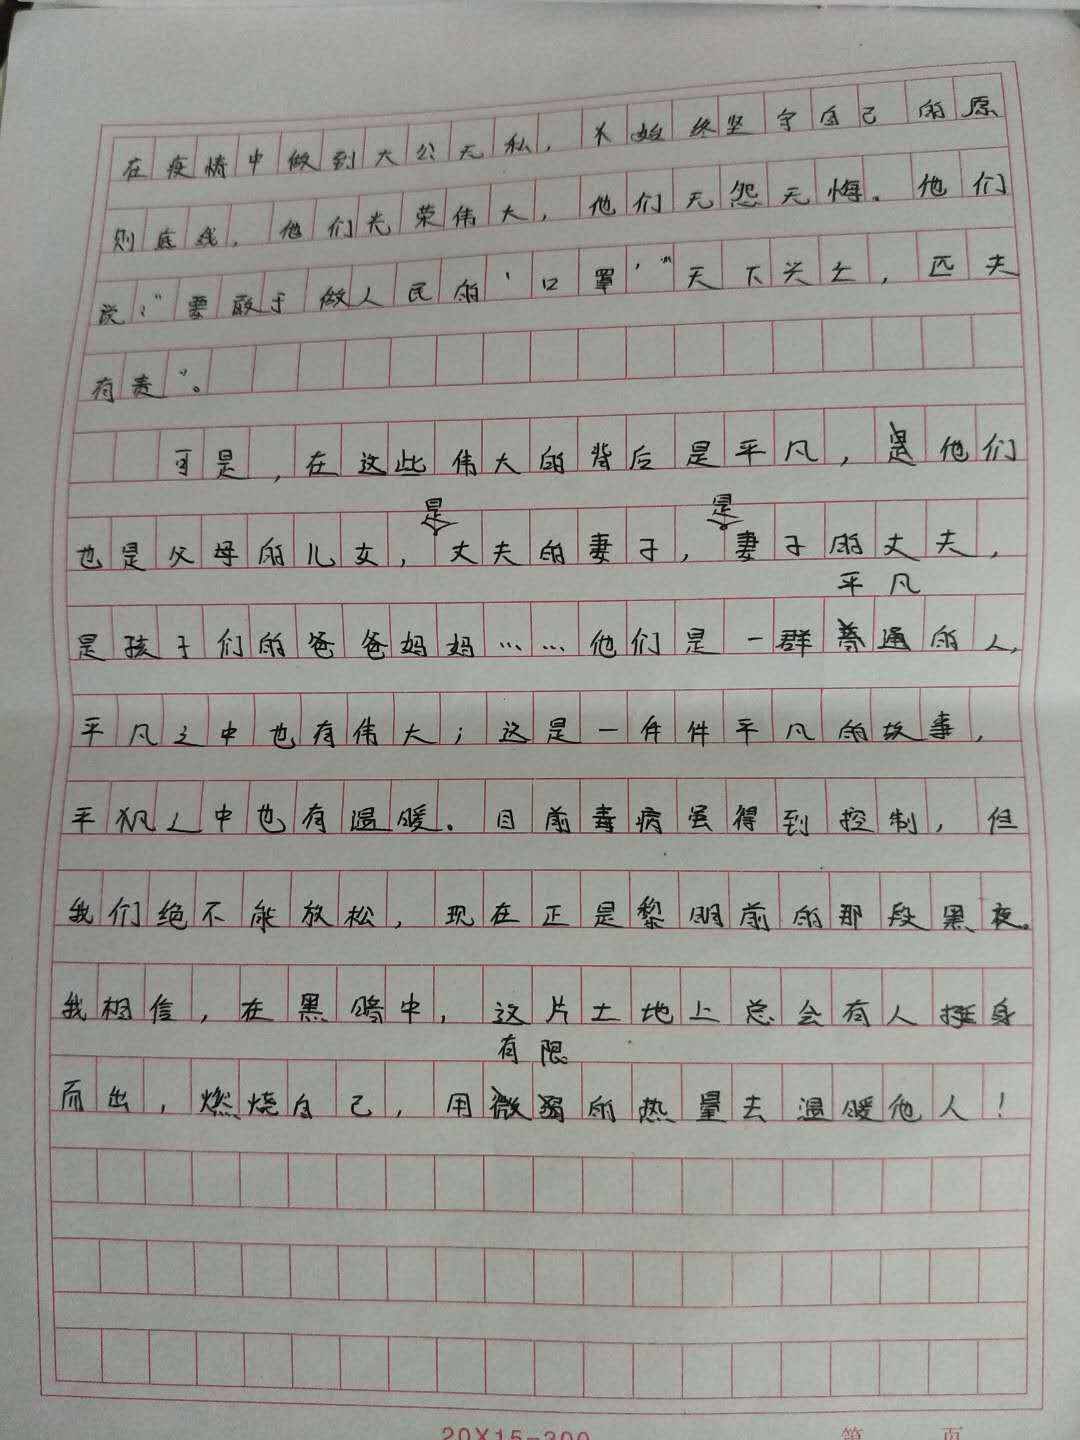 在疫情中做到大公无私，始终坚守自己的原
则底线，他们光荣伟大，他们无怨无悔。他们
说：“要敢于做人民的‘口罩’”“天下兴亡，匹夫
有责”。
可是，在这些伟大的背后是平凡，他们
也是父母的儿女，是丈夫的妻子，是妻子的丈夫，
是孩子们的爸爸妈妈……他们是一群平凡的人，
平凡之中也有伟大；这是一件件平凡的故事，
平凡之中也有温暖。目前毒病虽得到控制，但
我们绝不能放松，现在正是黎明前的那段黑夜。
我相信，在黑暗中，这片土地上总会有人挺身
而出，燃烧自己，用有限的热量去温暖他人！
20X15=300
第 页